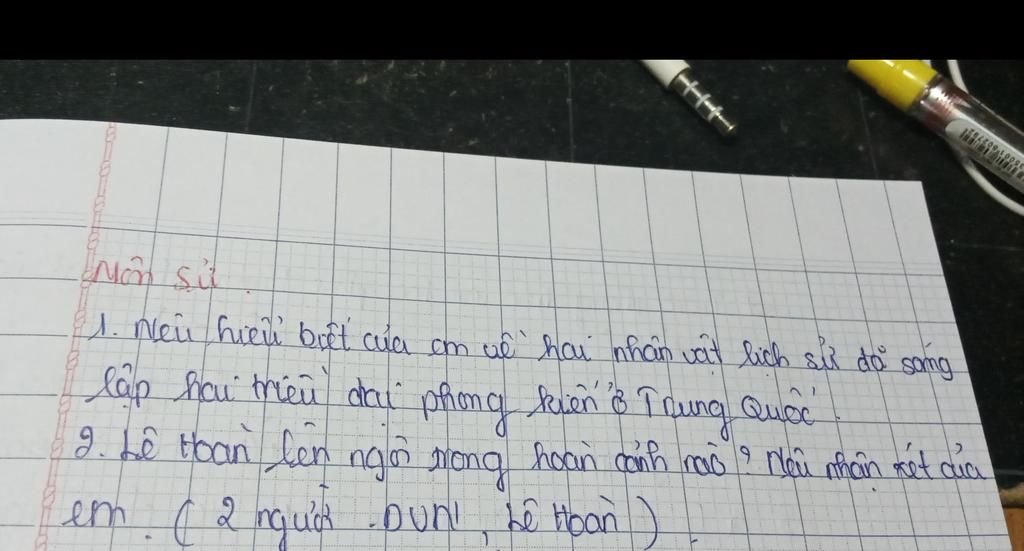 Môn sử.
1. Nêu hiểu biết của em về hai nhân vật lịch sử đã sáng
lập hai triều đại phong kiến ở Trung Quốc.
2. Lê Hoàn lên ngôi trong hoàn cảnh nào? Nêu nhận xét của
em. (2 người. DVN, Lê Hoàn).